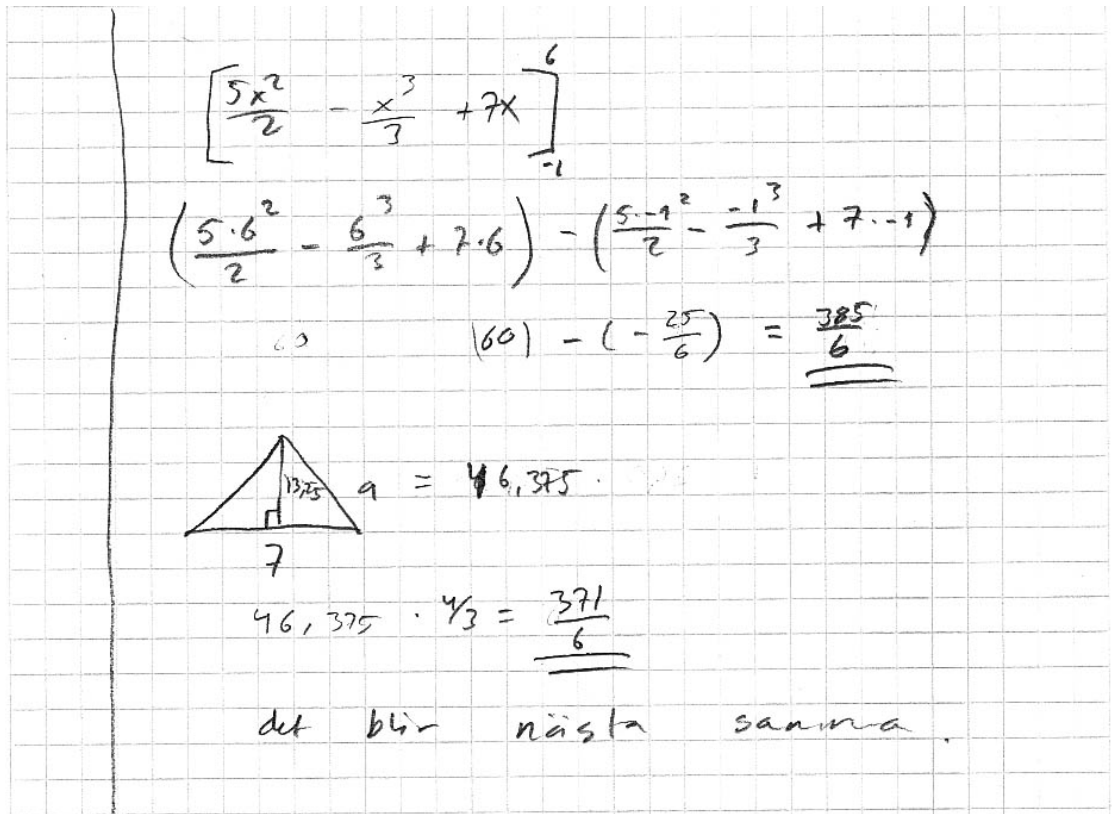 [5x²/2 - x³/3 + 7x]⁶₋₁
(5·6²/2 - 6³/3 + 7·6) - (5·-1²/2 - -1³/3 + 7·-1)
60 (60) - (-25/6) = 385/6
13,25 a = 46,375
7
46,375 · 4/3 = 371/6
det blir nästa samma.